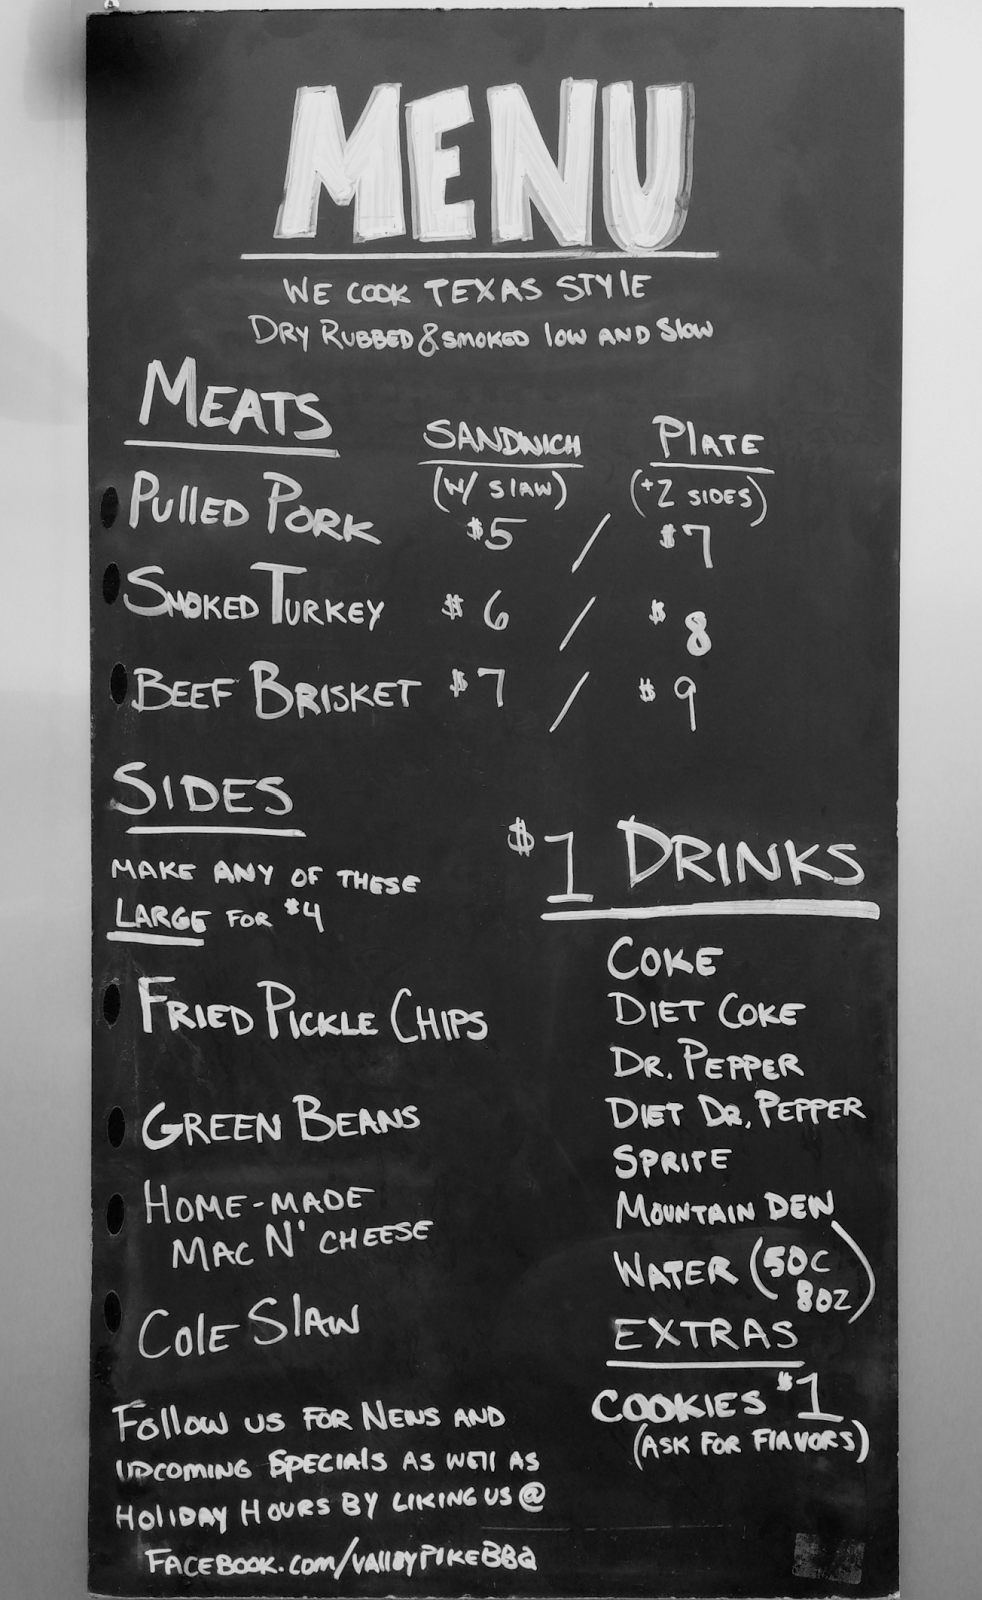 MENU
WE COOK TEXAS STYLE
DRY RUBBED & SMOKED LOW AND SLOW
MEATS
SANDWICH PLATE
(W/ SLAW) (+2 SIDES)
PULLED PORK $5 / $7
SMOKED TURKEY $6 / $8
BEEF BRISKET $7 / $9
SIDES
MAKE ANY OF THESE
LARGE FOR $4
FRIED PICKLE CHIPS
GREEN BEANS
HOME-MADE
MAC N' CHEESE
COLE SLAW
$1 DRINKS
COKE
DIET COKE
DR. PEPPER
DIET DR. PEPPER
SPRITE
MOUNTAIN DEW
WATER (50C
8OZ)
EXTRAS
COOKIES $1
(ASK FOR FLAVORS)
FOLLOW US FOR NEWS AND
UPCOMING SPECIALS AS WELL AS
HOLIDAY HOURS BY LIKING US @
FACEBOOK.COM/VALLEYPIKEBBQ